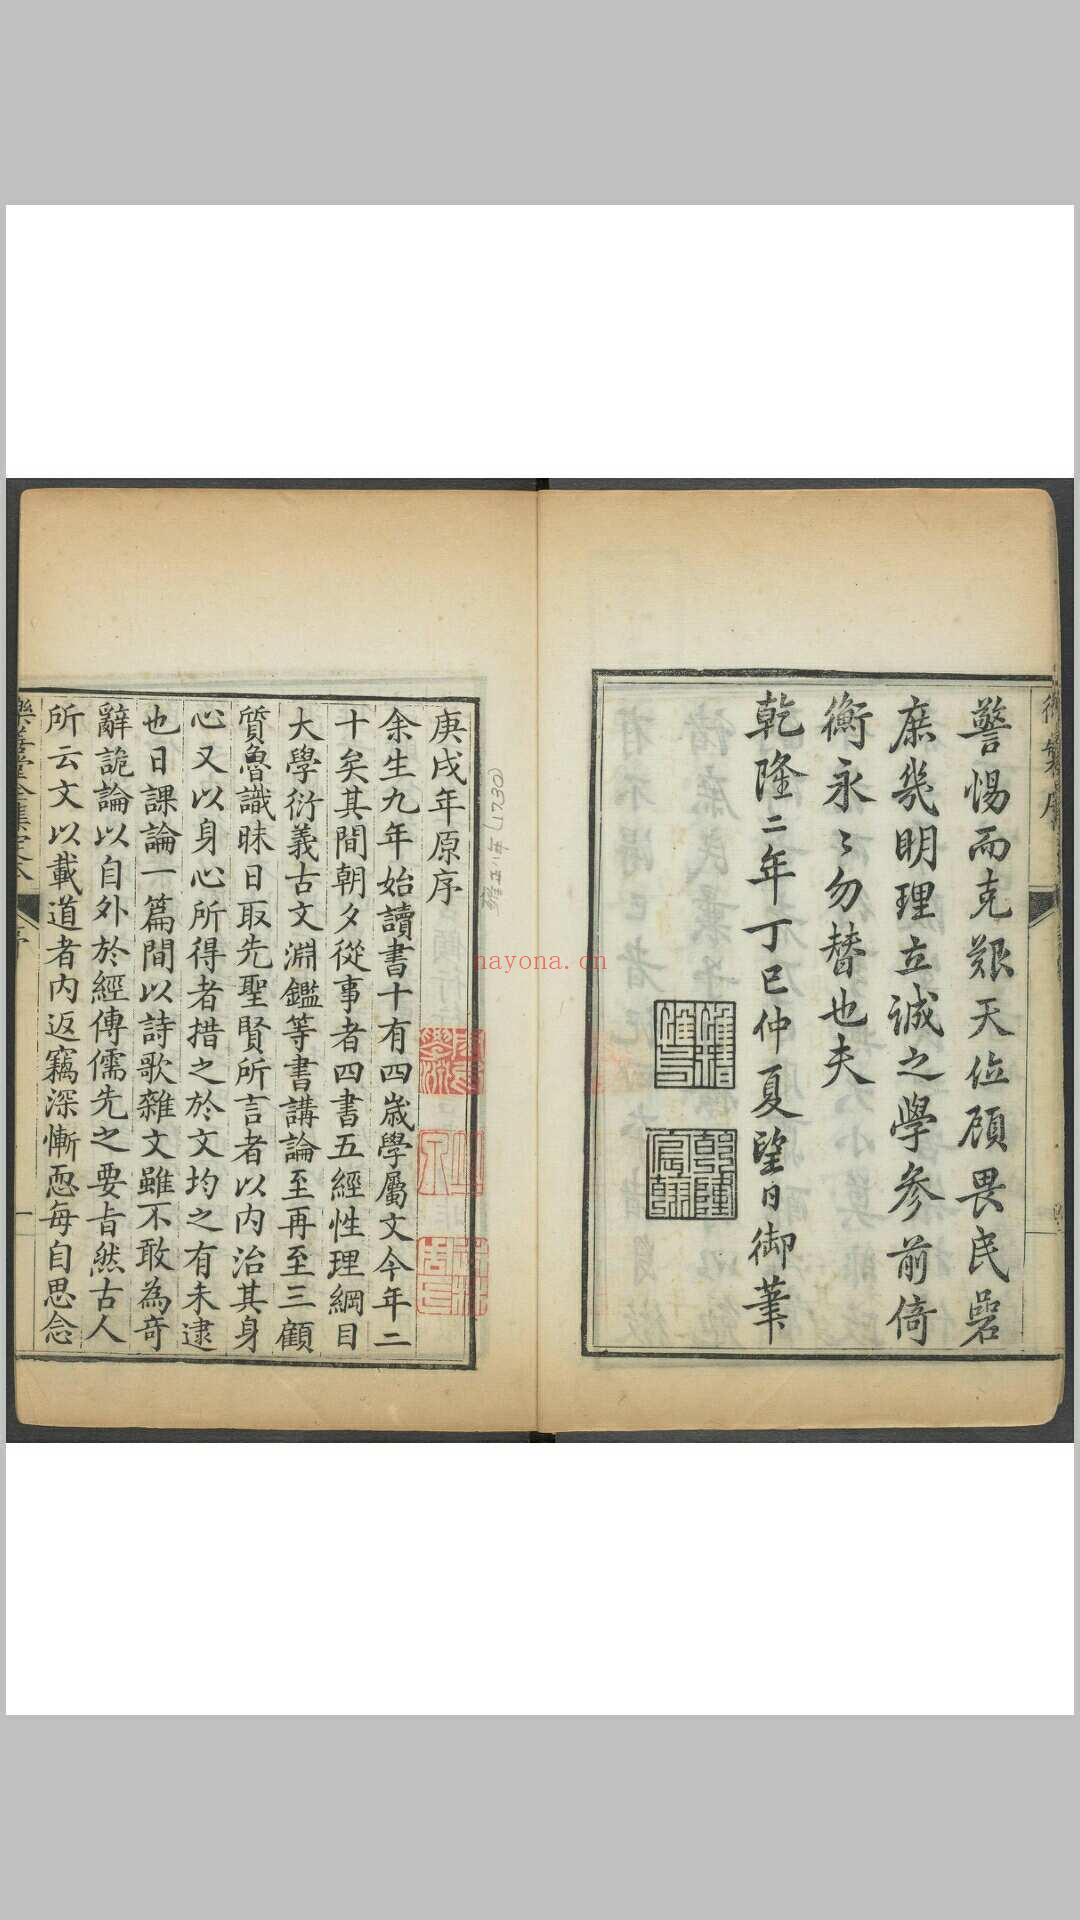 警惕而克艱天位顧畏民碞
庶幾明理立誠之學參前倚
衡永〻勿替也夫
乾隆二年丁巳仲夏望日御筆
惟精惟一
乾隆宸翰
庚戌年原序
雍正八年(1730)
余生九年始讀書十有四歲學屬文今年二
十矣其間朝夕從事者四書五經性理綱目
大學衍義古文淵鑑等書講論至再至三顧
質魯識昧日取先聖賢所言者以内治其身
心又以身心所得者措之於文均之有未逮
也日課論一篇間以詩歌雜文雖不敢為奇
辭詭論以自外於經傳儒先之要旨然古人
所云文以載道者内返竊深慚恧每自思念
樂善堂全集定本
序
一
nayona.cn